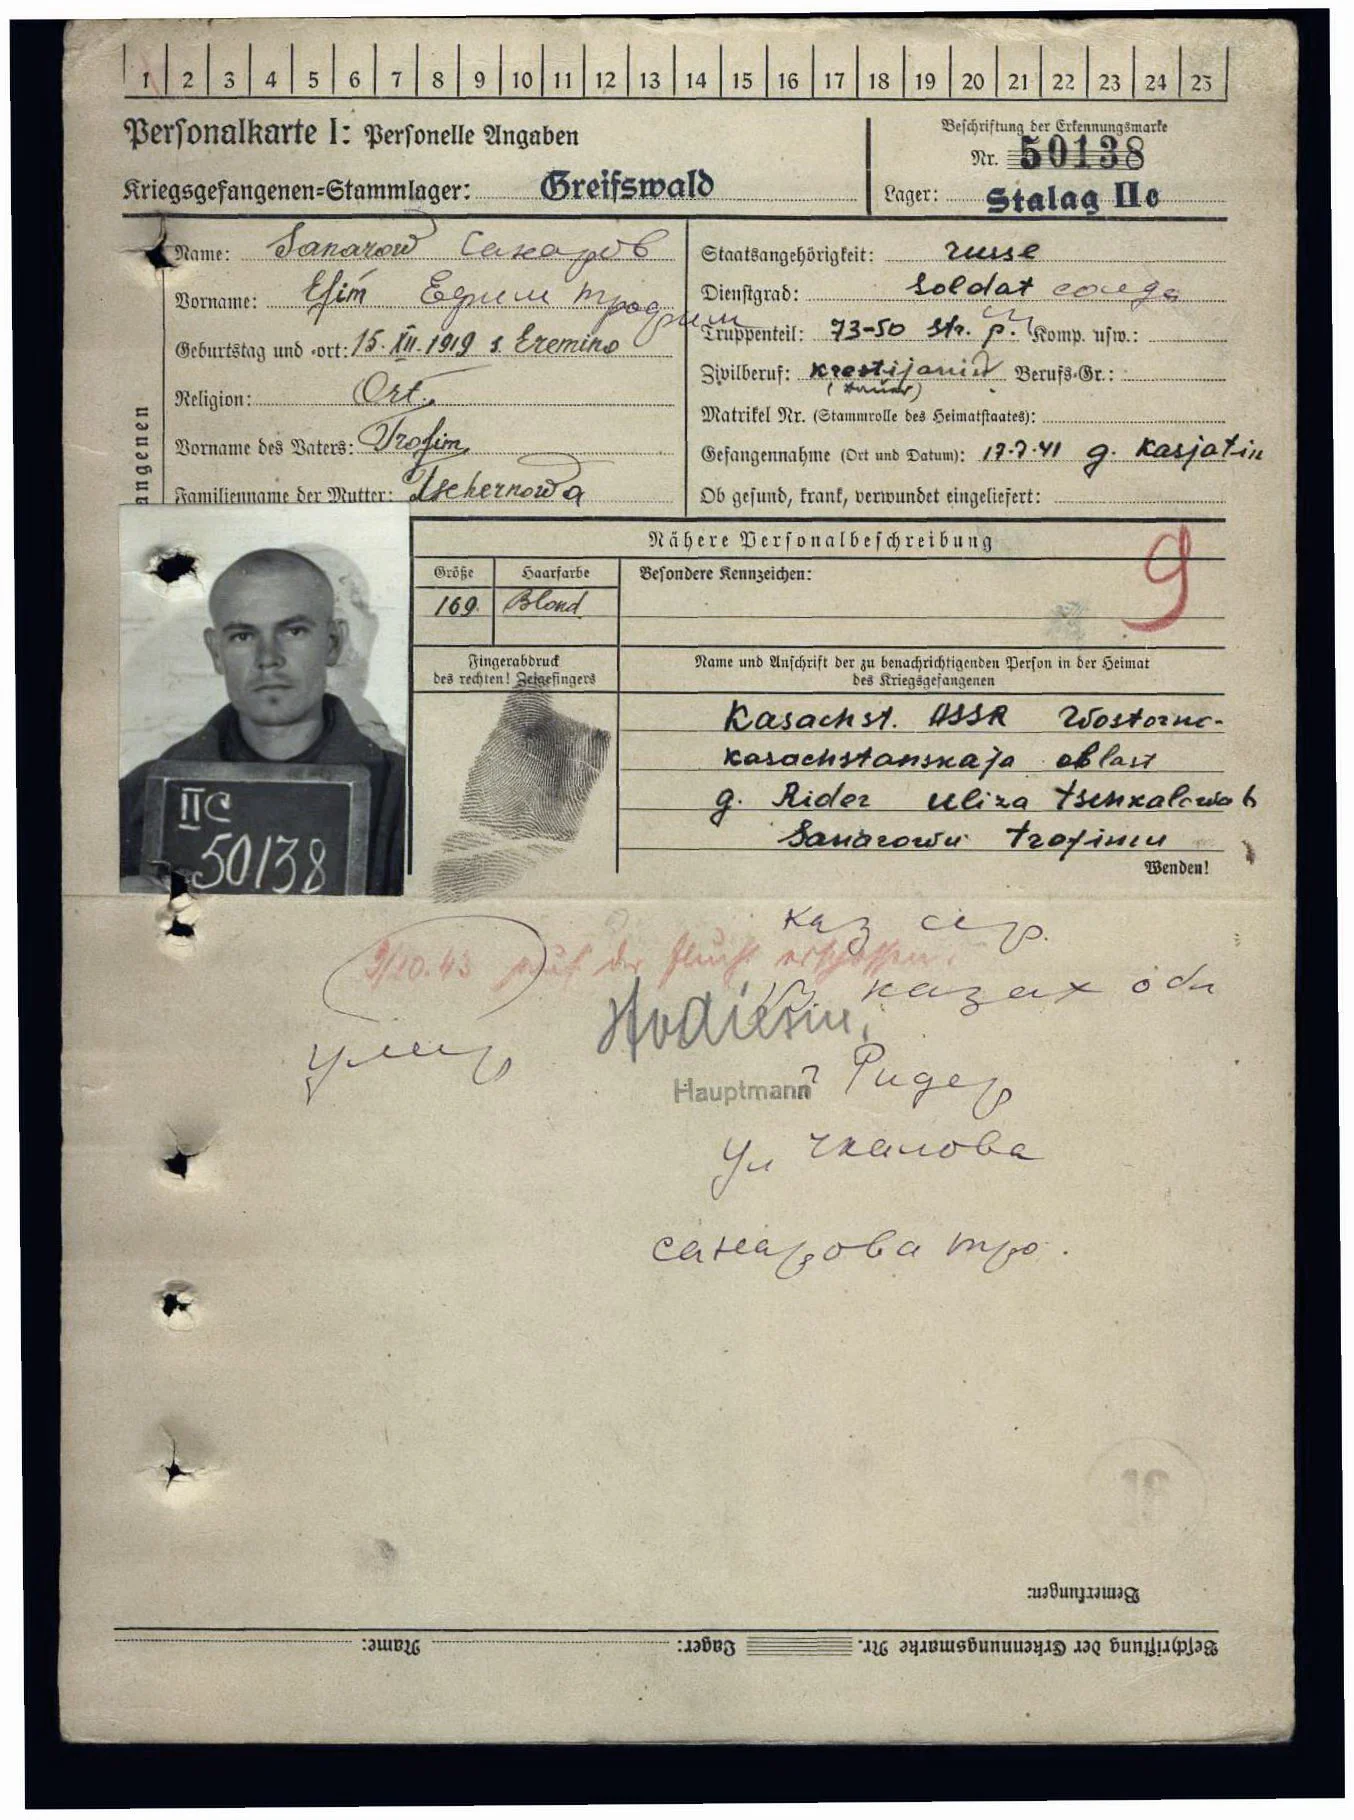 1 2 3 4 5 6 7 8 9 10 11 12 13 14 15 16 17 18 19 20 21 22 23 24 25
Personalkarte I: Personelle Angaben
Kriegsgefangenen-Stammlager: Greifswald
Beschriftung der Erkennungsmarke
Nr. 50138
Lager: Stalag IIc
Name: Sanarow Санаров
Vorname: Efim Ефим
Geburtstag und -ort: 15. XII. 1919 s. Eremino
Religion: Ort.
Vorname des Vaters: Trofim
Familienname der Mutter: Tschernowa
angenen
Staatsangehörigkeit: russe
Dienstgrad: Soldat солда
Truppenteil: 73-50 Str. p. Komp. usw.:
Zivilberuf: Krestijanin Berufs-Gr.:
(Bauer)
Matrikel Nr. (Stammrolle des Heimatstaates):
Gefangennahme (Ort und Datum): 17.7.41 g. Kasjatin
Ob gesund, krank, verwundet eingeliefert:
Nähere Personalbeschreibung
9
Größe Haarfarbe Besondere Kennzeichen:
169. Blond
Fingerabdruck
des rechten! Zeigefingers
Name und Anschrift der zu benachrichtigenden Person in der Heimat
des Kriegsgefangenen
Kasachst. ASSR Wostorno-
kasachstanskaja oblast
g. Rider uliza Tschkalowa 6
Sanarowu Trofimu
Wenden!
IIC
50138
каз сср.
9/10.43 auf der Flucht erschossen.
казах обл
умер
Hauptmann
г Ридер
ул чкалова
санарова тро.
16
Bemerkungen:
Beschriftung der Erkennungsmarke Nr. Lager: Name: